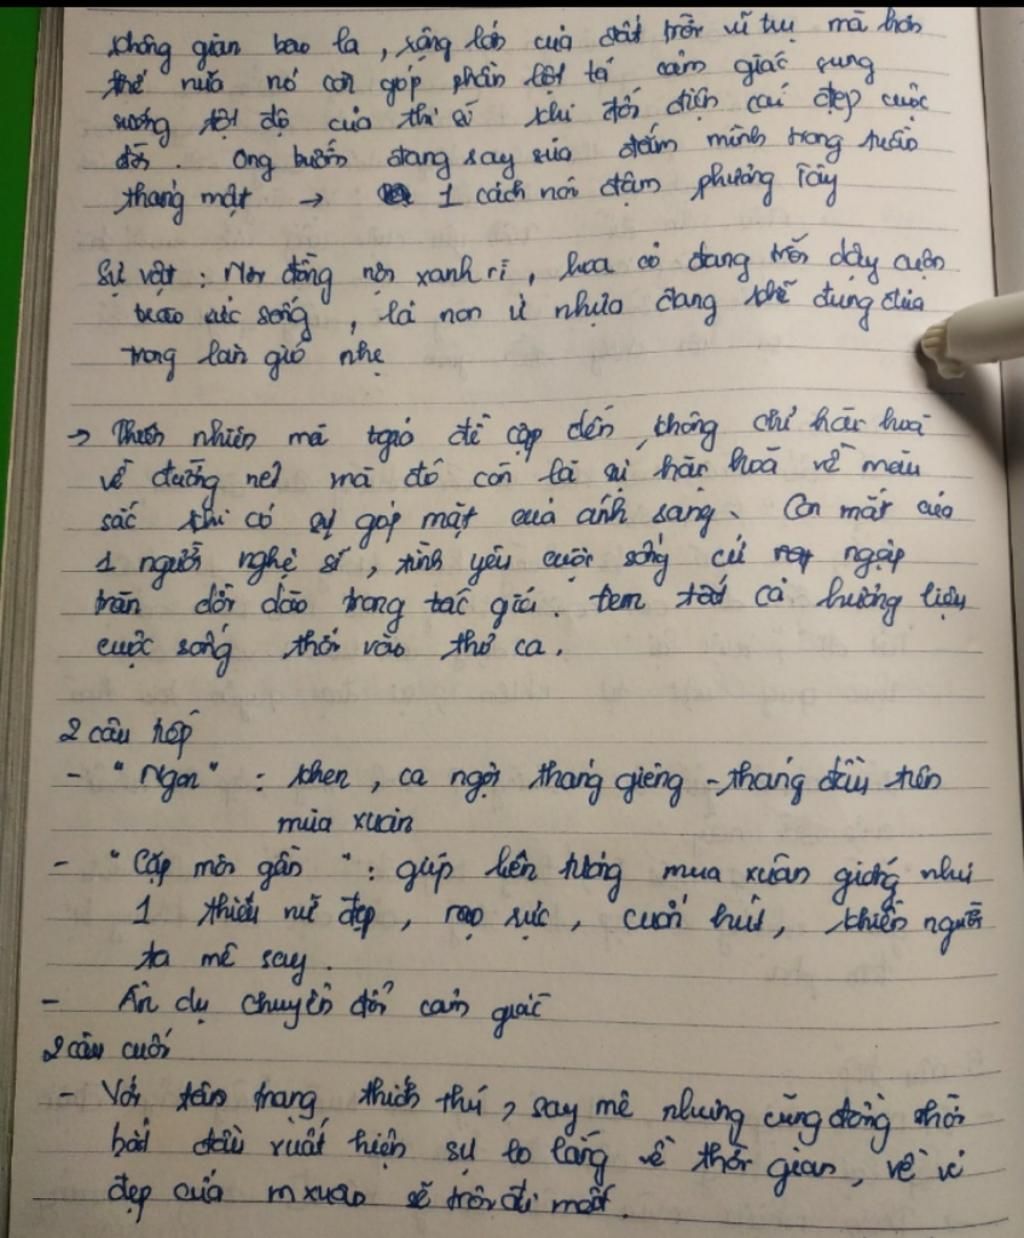 không gian bao la, rộng lớn của đất trời vũ trụ mà hơn
thế nữa nó còn góp phần lột tả cảm giác sung
sướng tột độ của thi sĩ khi đối diện cái đẹp cuộc
đời. Ong bướm đang say sưa đắm mình trong tuần
tháng mật → 1 cách nói đậm phương Tây
Sự vật: Nơi đồng nội xanh rì, hoa cỏ đang trỗi dậy cuộn
trào sức sống, lá non ứ nhựa đang khẽ đung đưa
trong làn gió nhẹ
→ Thiên nhiên mà tgiả đề cập đến, không chỉ hài hoà
về đường nét mà đó còn là sự hài hoà về màu
sắc khi có sự góp mặt của ánh sáng. Con mắt của
1 người nghệ sĩ, tình yêu cuộc sống cứ ngập
tràn dồi dào trong tác giả. Đem tất cả hương liệu
cuộc sống thổi vào thơ ca.
2 câu tiếp
- "Ngon" : khen, ca ngợi tháng giêng - tháng đầu tiên
mùa xuân
- "Cặp môi gần" : giúp liên tưởng mùa xuân giống như
1 thiếu nữ đẹp, rạo rực, cuốn hút, khiến người
ta mê say.
- Ẩn dụ chuyển đổi cảm giác
2 câu cuối
- Với tâm trạng thích thú, say mê nhưng cũng đồng thời
bắt đầu xuất hiện sự lo lắng về thời gian, về vẻ
đẹp của mxuân sẽ trôi đi mất.